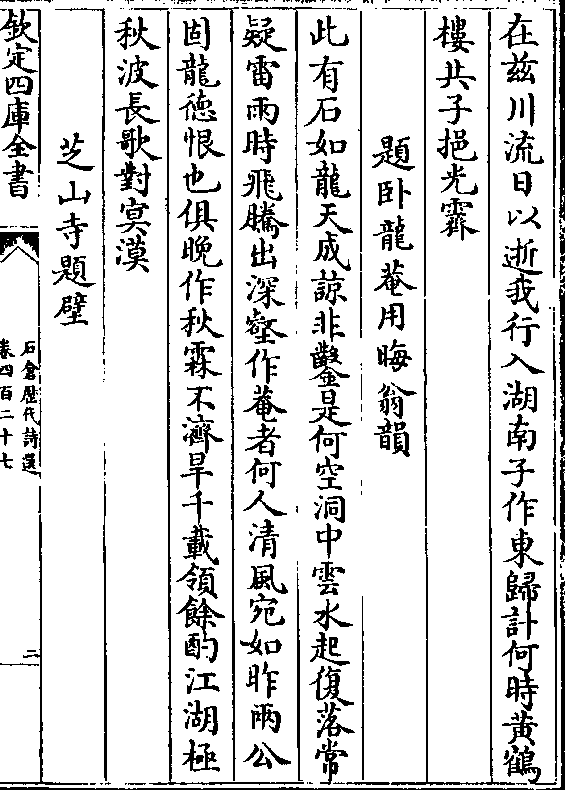 在兹川流日以逝我行入湖南子作東歸計何時黄鶴
樓共子挹光霽
題卧龍菴用晦翁韻
此有石如龍天成諒非鑿是何空洞中雲水起復落常
疑雷雨時飛騰出深壑作菴者何人清風宛如昨兩公
固龍徳恨也俱晚作秋霖不濟旱千載領餘酌江湖極
秋波長歌對寞漠
芝山寺題壁
欽定四庫全書
石倉歴代詩選
卷四百二十七
二